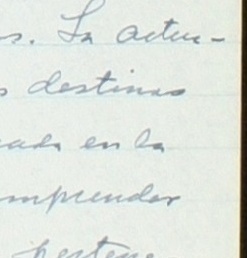 s. La actua-
s destinos
cada en la
omprender
pertene